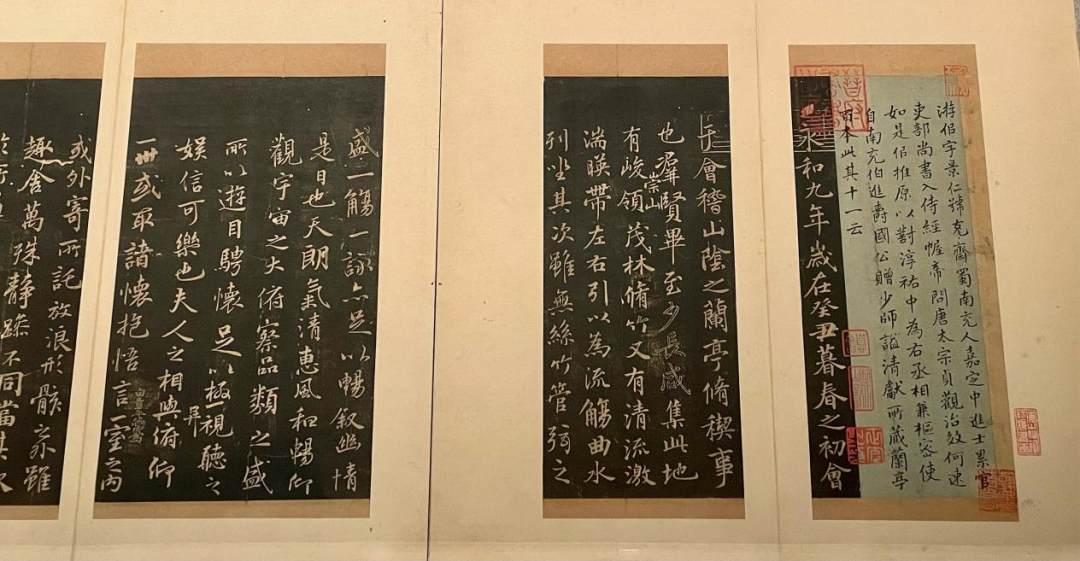 游佀字景仁號克齋蜀南充人嘉定中進士累官
吏部尚書入侍經幄帝問唐太宗貞觀治效何速
如是佀推原以對淳祐中為右丞相兼樞密使
自南充伯進爵國公贈少師謚清獻所藏蘭亭
百本此其十一云
永和九年歲在癸丑暮春之初會
于會稽山陰之蘭亭脩稧事
也羣賢畢至少長咸集此地
有崇山峻領茂林脩竹又有清流激
湍暎帶左右引以為流觴曲水
列坐其次雖無絲竹管弦之
盛一觴一詠亦足以暢叙幽情
是日也天朗氣清惠風和暢仰
觀宇宙之大俯察品類之盛
所以遊目騁懷足以極視聽之
娛信可樂也夫人之相與俯仰
一世或取諸懷抱悟言一室之內
或外寄所託放浪形骸之外雖
趣舍萬殊靜躁不同當其